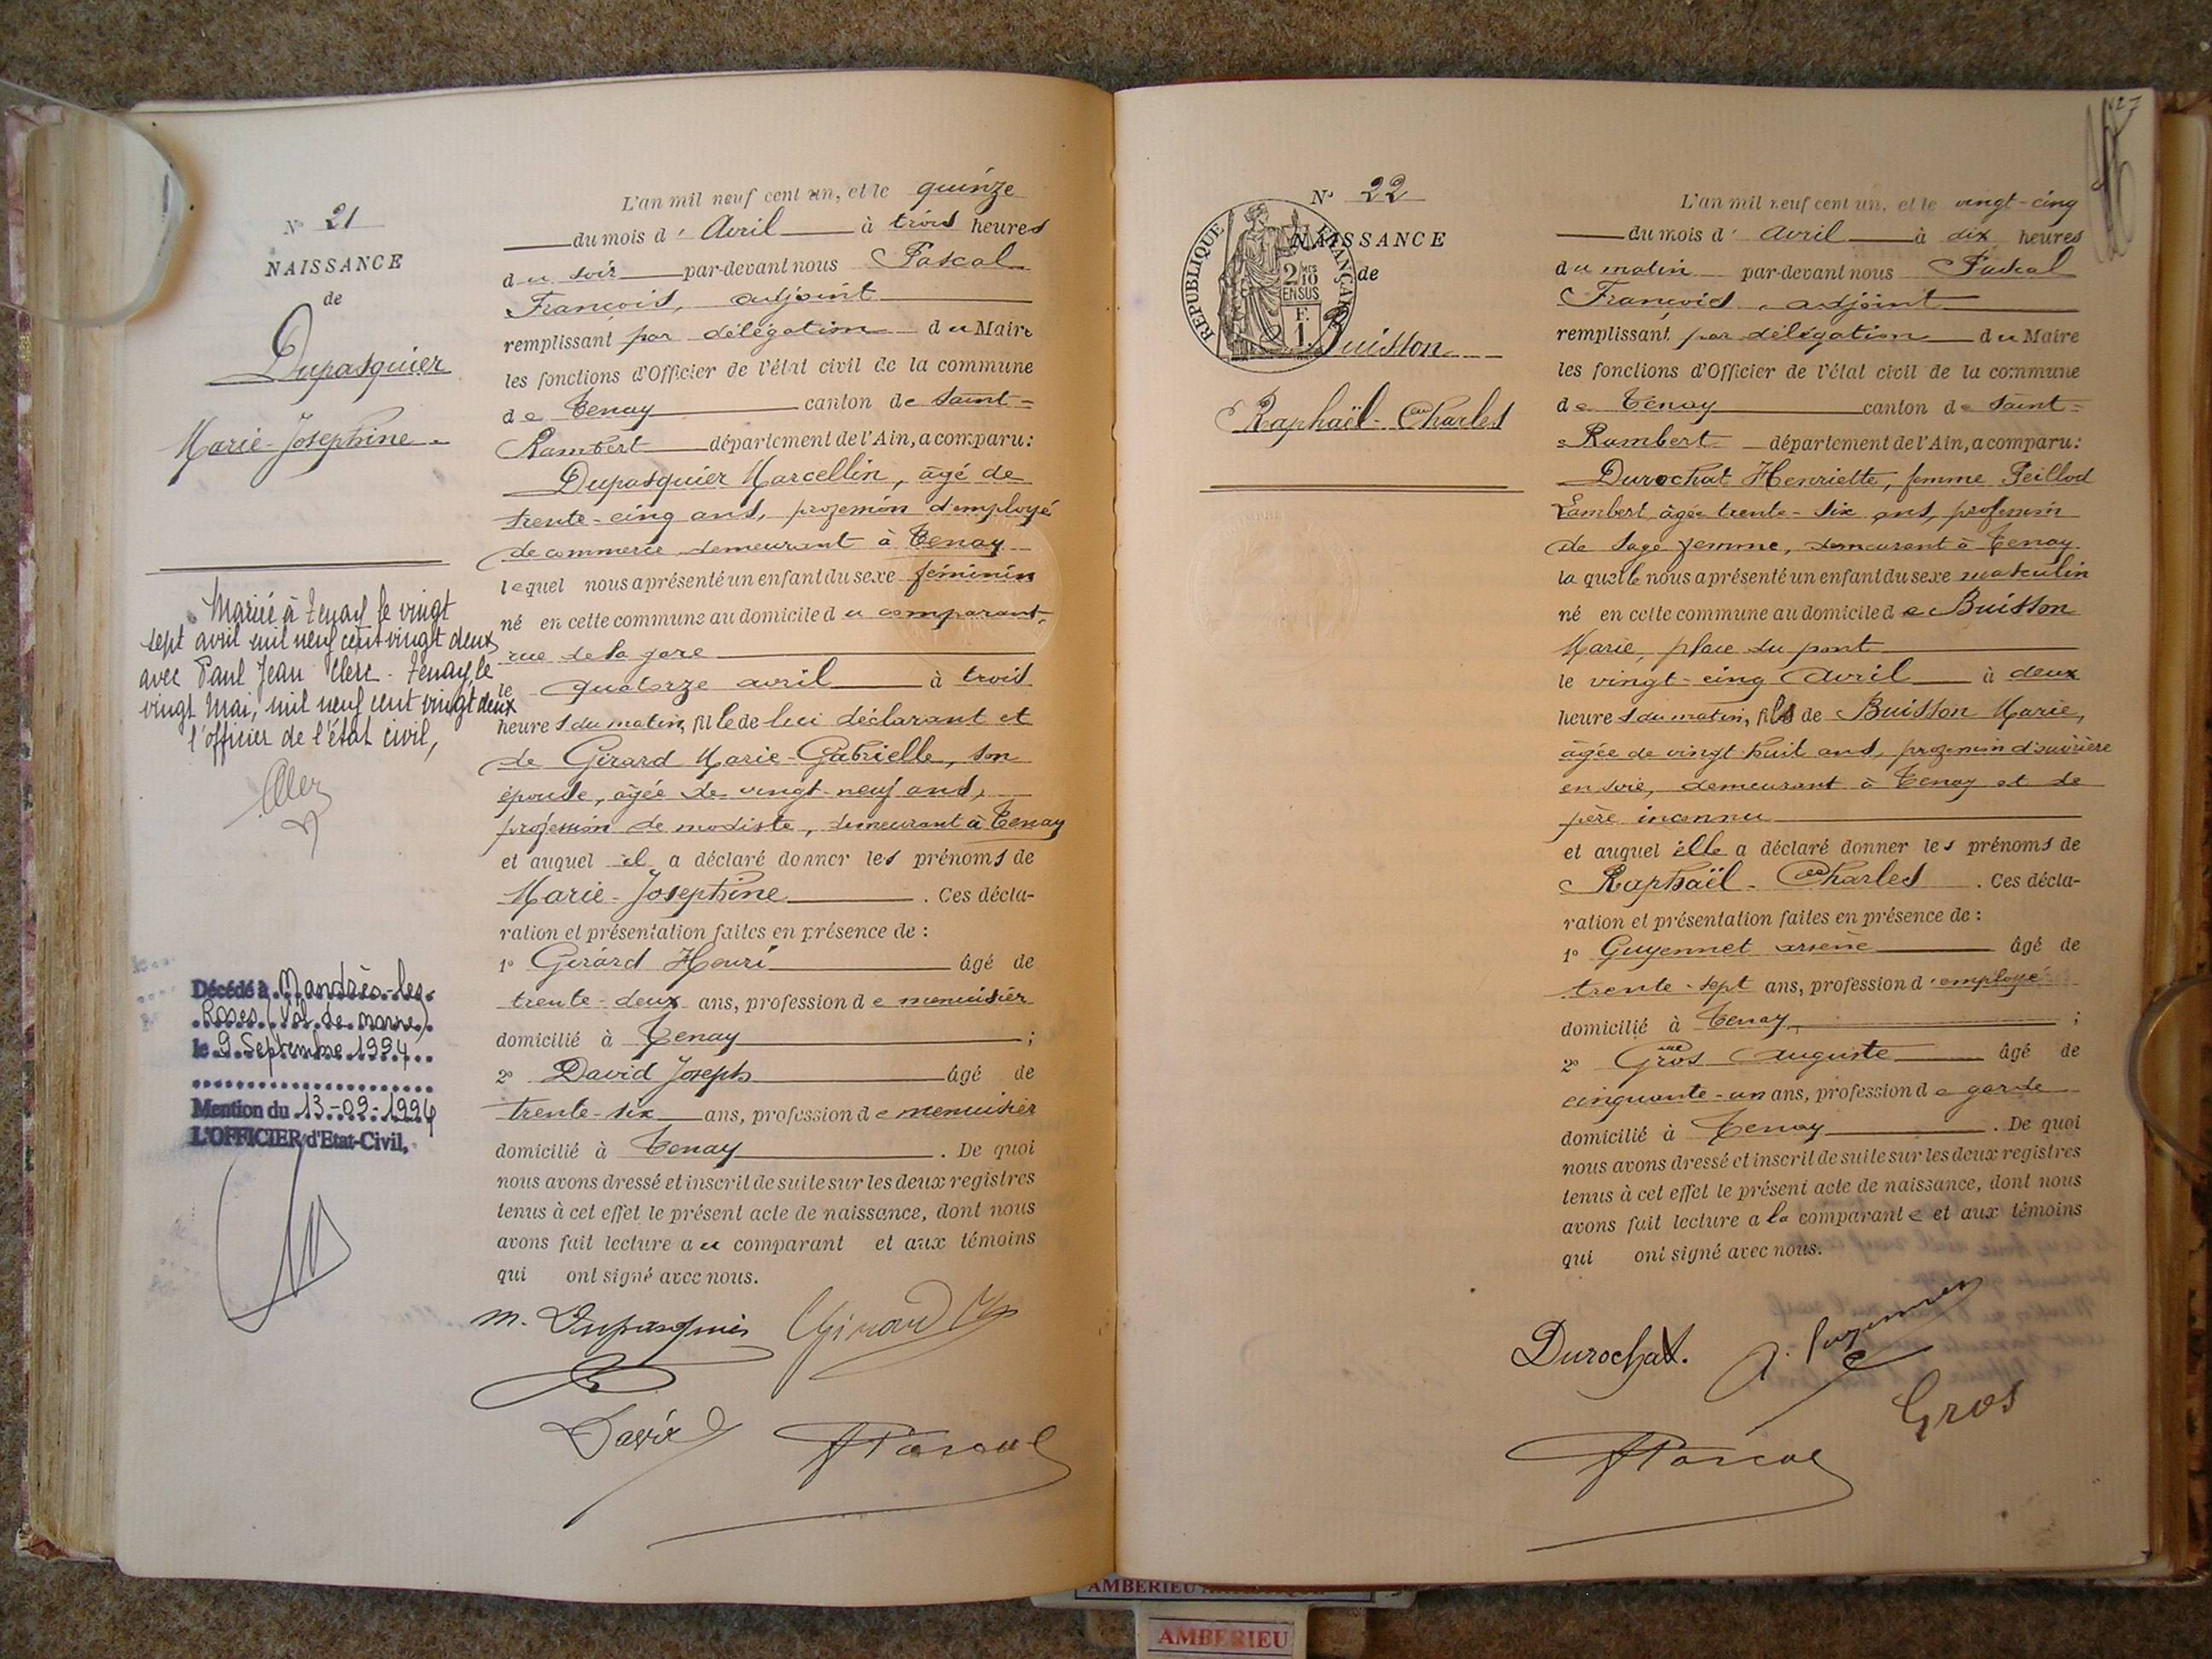 N° 21
NAISSANCE
de
Dupasquier
Marie-Josephine
Mariée à Tenay le vingt
sept avril mil neuf cent vingt deux
avec Paul Jean Clerc - Tenay, le
vingt Mai, mil neuf cent vingt deux
l'officier de l'état civil,
Décédé à Mandrès-les-
Roses (Val de marne)
le 9 Septembre 1994
Mention du 13-09-1994
L'OFFICIER d'Etat-Civil,
L'an mil neuf cent un, et le quinze
du mois d'Avril à trois heures
du soir par-devant nous Pascal
François, adjoint
remplissant par délégation du Maire
les fonctions d'Officier de l'état civil de la commune
de Tenay canton de Saint-
Rambert département de l'Ain, a comparu:
Dupasquier Marcellin, âgé de
trente-cinq ans, profession d'employé
de commerce demeurant à Tenay
lequel nous a présenté un enfant du sexe féminin
né en cette commune au domicile du comparant,
rue de la gare
le quatorze avril à trois
heures du matin, fille de lui déclarant et
de Girard Marie-Gabrielle, son
épouse, âgée de vingt-neuf ans,
profession de modiste, demeurant à Tenay
et auquel il a déclaré donner les prénoms de
Marie-Josephine. Ces décla-
ration et présentation faites en présence de :
1° Girard Henri âgé de
trente-deux ans, profession de menuisier
domicilié à Tenay ;
2° David Joseph âgé de
trente-six ans, profession de menuisier
domicilié à Tenay. De quoi
nous avons dressé et inscrit de suite sur les deux registres
tenus à cet effet le présent acte de naissance, dont nous
avons fait lecture au comparant et aux témoins
qui ont signé avec nous.
M. Dupasquier Girard
David Pascal
127
N° 22
NAISSANCE
de
RÉPUBLIQUE FRANÇAISE
2/10 EN SUS
F. 1.
Buisson
Raphaël-Charles
L'an mil neuf cent un, et le vingt-cinq
du mois d'avril à dix heures
du matin par-devant nous Pascal
François, adjoint
remplissant par délégation du Maire
les fonctions d'Officier de l'état civil de la commune
de Tenay canton de Saint-
Rambert département de l'Ain, a comparu:
Durochat Henriette, femme Peillod
Lambert, âgée trente-six ans, profession
de sage femme, demeurant à Tenay
laquelle nous a présenté un enfant du sexe masculin
né en cette commune au domicile de Buisson
Marie, place du pont
le vingt-cinq Avril à deux
heures du matin, fils de Buisson Marie,
âgée de vingt huit ans, profession d'ouvrière
en soie, demeurant à Tenay et de
père inconnu
et auquel elle a déclaré donner les prénoms de
Raphaël-Charles. Ces décla-
ration et présentation faites en présence de :
1° Guyennet arsène âgé de
trente-sept ans, profession d'employé
domicilié à Tenay, ;
2° Gros Auguste âgé de
cinquante-un ans, profession de garde
domicilié à Tenay. De quoi
nous avons dressé et inscrit de suite sur les deux registres
tenus à cet effet le présent acte de naissance, dont nous
avons fait lecture à la comparante et aux témoins
qui ont signé avec nous.
Durochat. A. Guyennet
Gros
Pascal
AMBERIEU
AMBERIEU